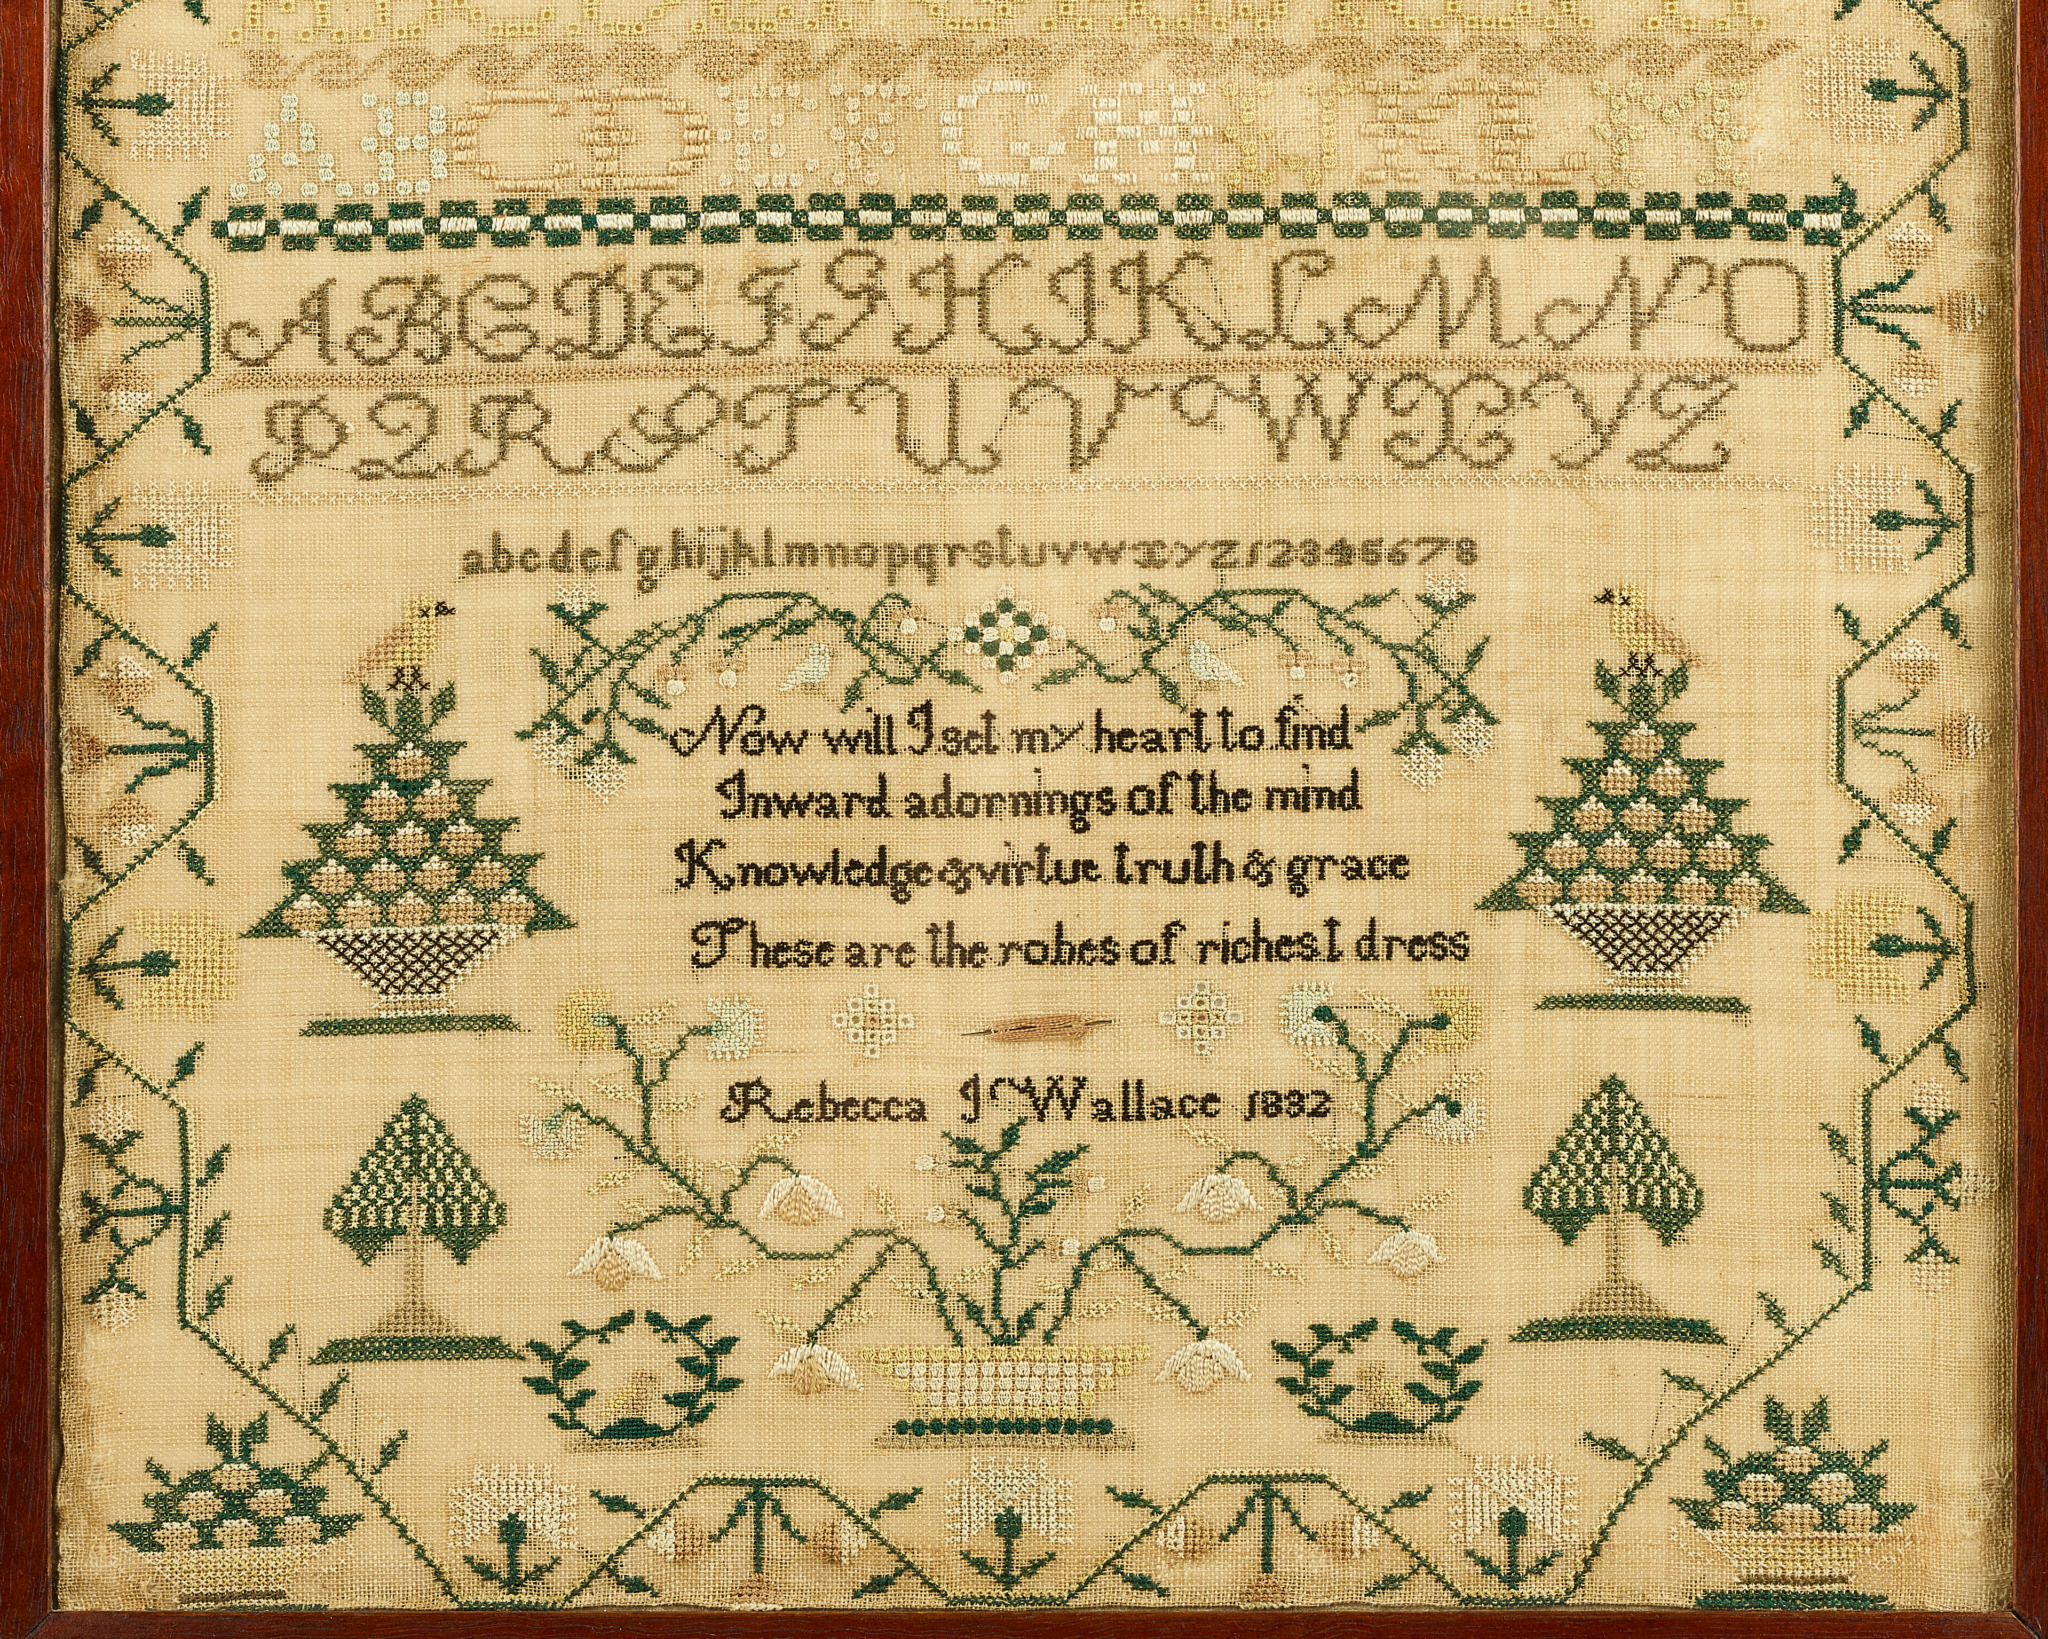 A B C D E F G H I J K L M
A B C D E F G H I K L M N O
P Q R S T U V W X Y Z
abcdefghijklmnopqrstuvwxyz12345678
Now will I set my heart to find
Inward adornings of the mind
Knowledge & virtue truth & grace
These are the robes of richest dress
Rebecca J Wallace 1832